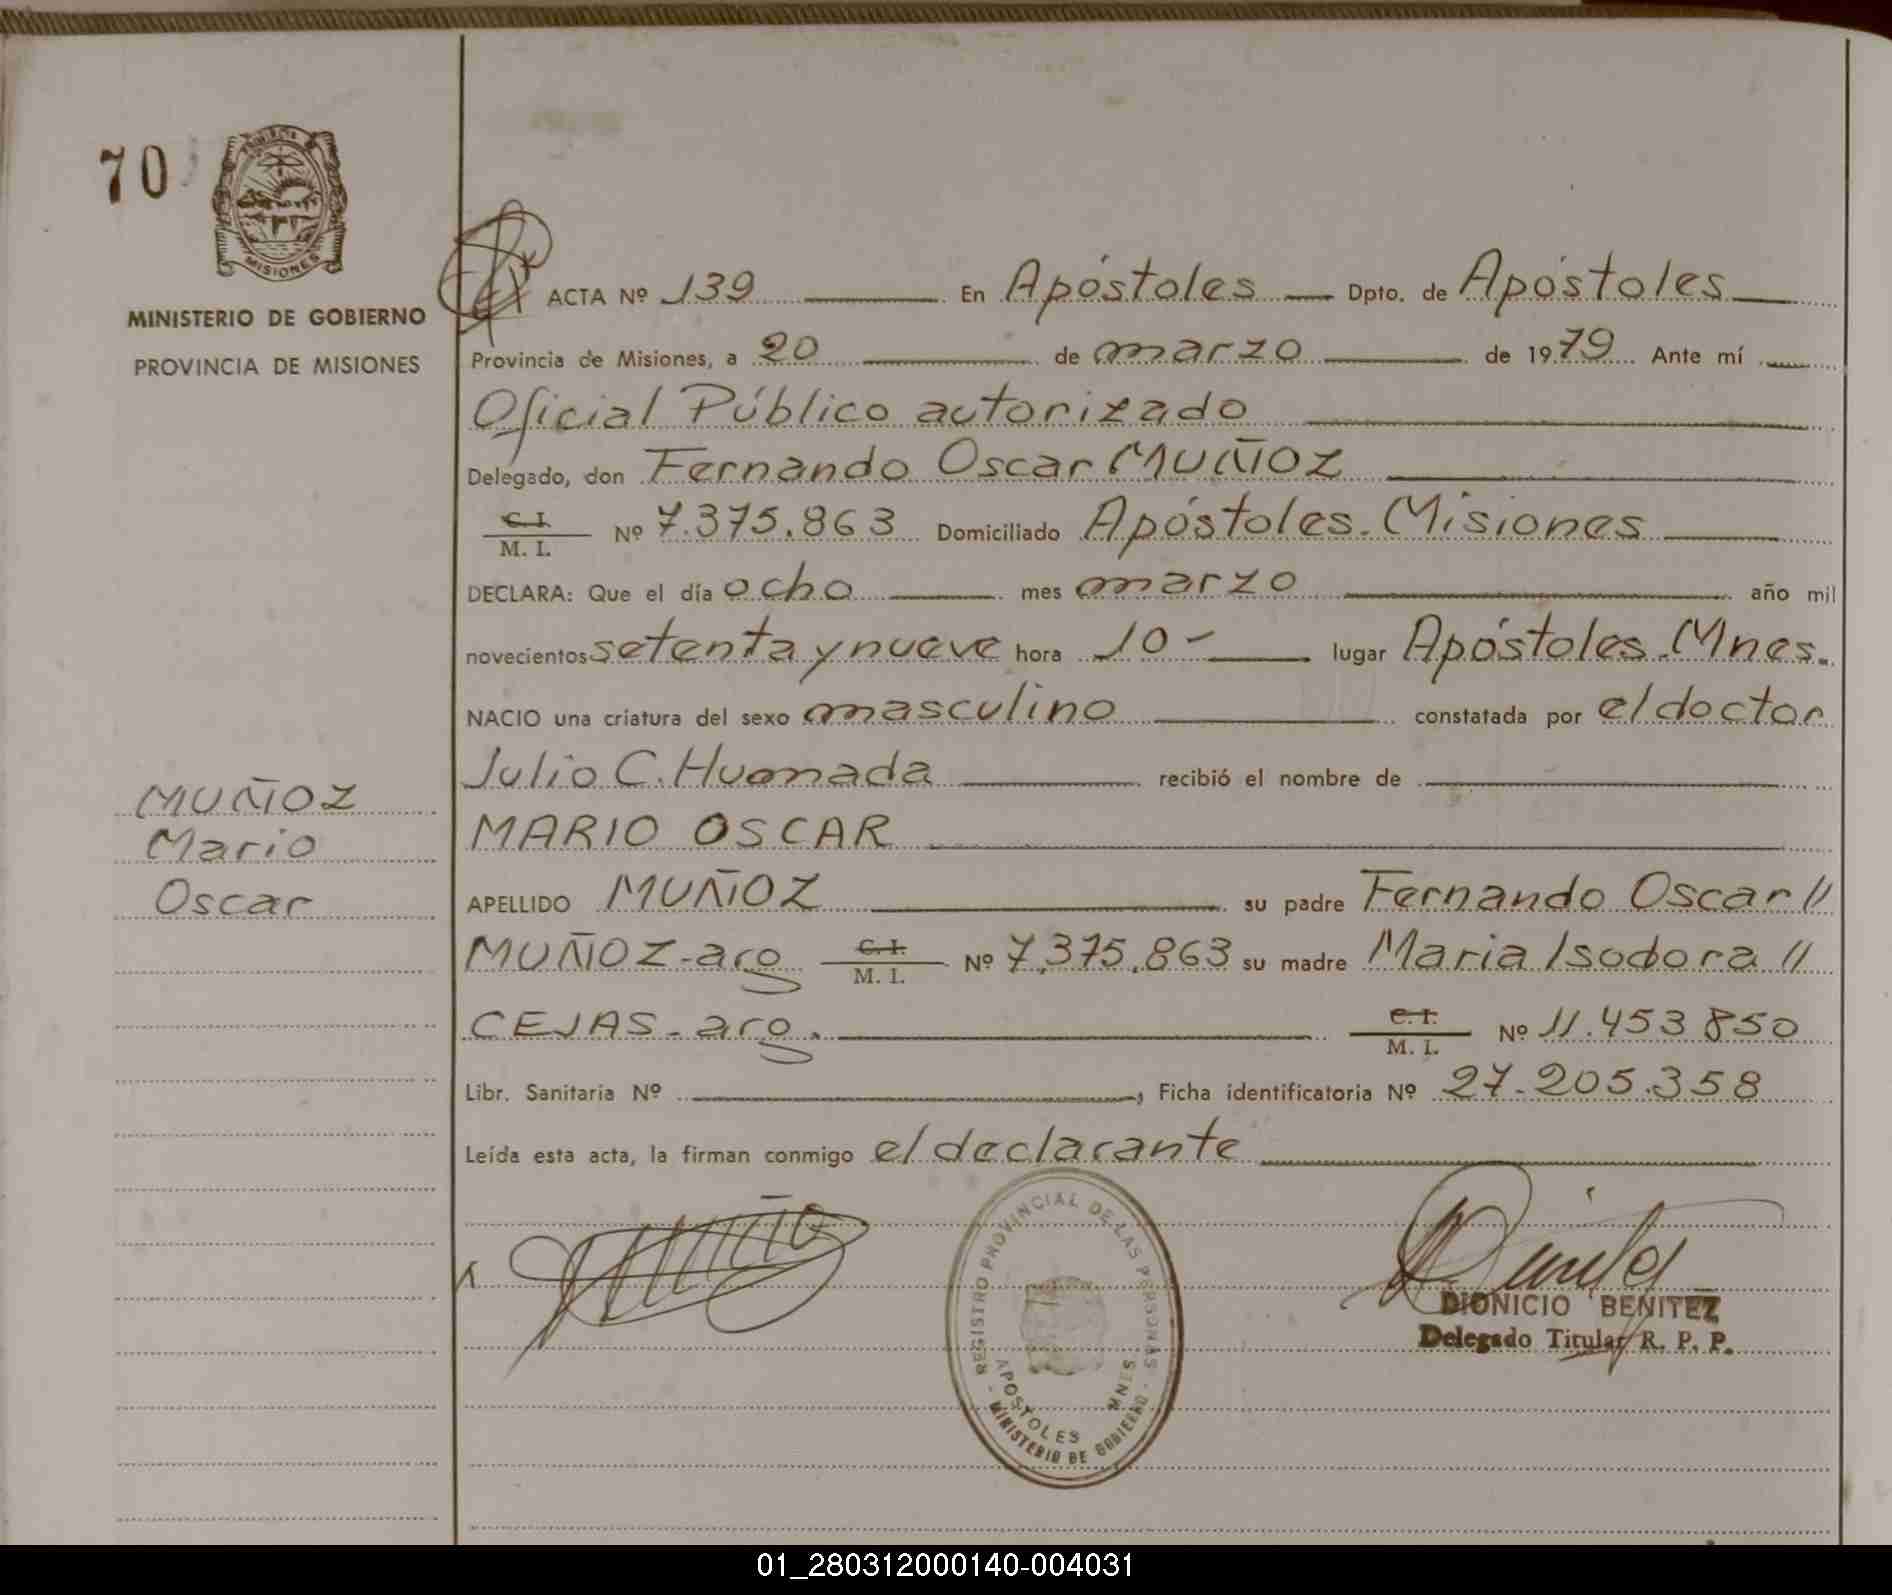 70
PROVINCIA
MISIONES
MINISTERIO DE GOBIERNO
PROVINCIA DE MISIONES
MUÑOZ
Mario
Oscar
ACTA Nº 139 En Apóstoles Dpto. de Apóstoles
Provincia de Misiones, a 20 de marzo de 1979 Ante mí
Oficial Público autorizado
Delegado, don Fernando Oscar MUÑOZ
C. I.
M. I. Nº 7.375.863 Domiciliado Apóstoles. Misiones
DECLARA: Que el día ocho mes marzo año mil
novecientos setenta y nueve hora 10- lugar Apóstoles. Mnes.
NACIO una criatura del sexo masculino constatada por el doctor
Julio C. Humada recibió el nombre de
MARIO OSCAR
APELLIDO MUÑOZ su padre Fernando Oscar //
MUÑOZ-arg C. I. M. I. Nº 7.375.863 su madre Maria Isodora //
CEJAS-arg. C. I. M. I. Nº 11.453.850
Libr. Sanitaria Nº , Ficha identificatoria Nº 27-205.358
Leída esta acta, la firman conmigo el declarante
REGISTRO PROVINCIAL DE LAS PERSONAS
APOSTOLES MNES
MINISTERIO DE GOBIERNO
DIONICIO BENITEZ
Delegado Titular R. P. P.
01_280312000140-004031